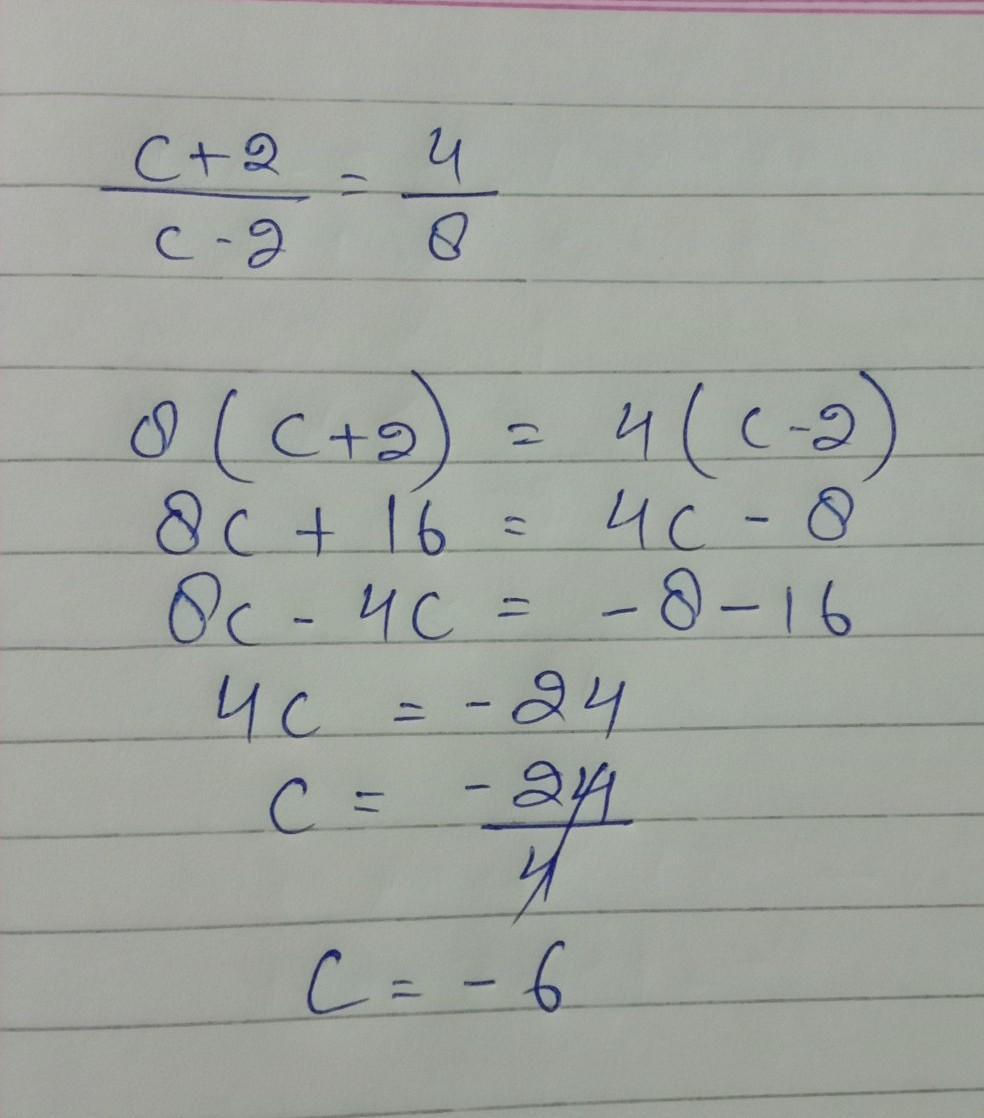 c+2/c-2 = 4/8
8(c+2) = 4(c-2)
8c + 16 = 4c - 8
8c - 4c = -8-16
4c = -24
c = -24/4
c = -6